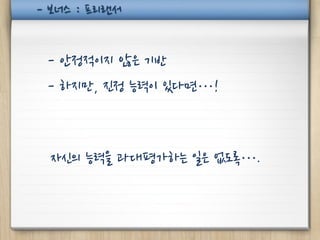 - 보너스 : 프리랜서
- 안정적이지 않은 기반
- 하지만, 진정 능력이 있다면…!
자신의 능력을 과대평가하는 일은 없도록….